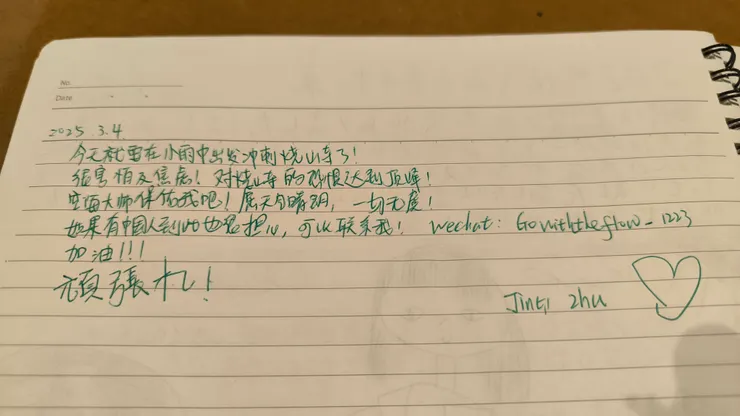 No.
Date
2025.3.4.
今天就要在小雨中出发冲刺烧山寺了!
很害怕及焦虑! 对烧山寺的惊恨达到顶峰!
空海大师保佑我吧! 愿天气晴朗, 一切无虞!
如果有中国人到此也很担心, 可以联系我! wechat: Gowiththeflow_1223
加油!!!
頑張れ!
Jinqi Zhu